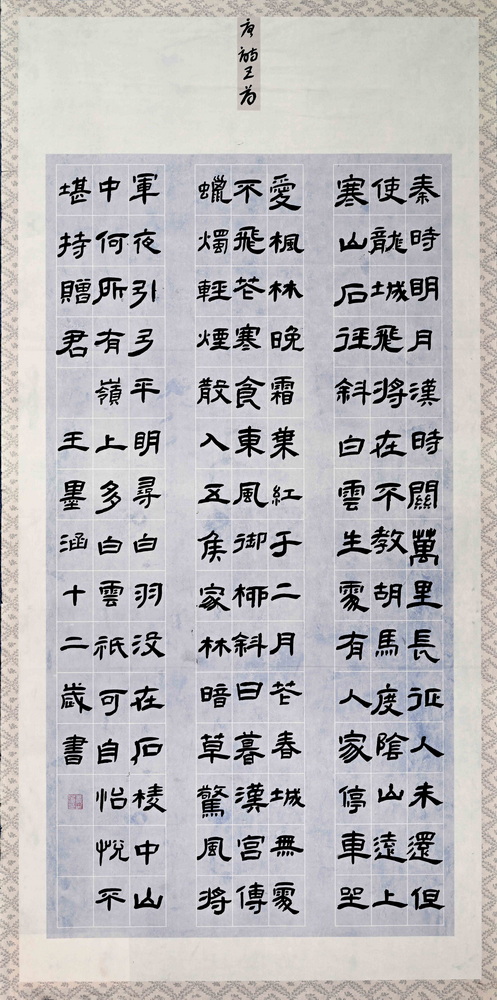 唐詩五首
秦時明月漢時關萬里長征人未還但
使龍城飛將在不教胡馬度陰山遠上
寒山石徑斜白雲生處有人家停車坐
愛楓林晚霜葉紅于二月花春城無處
不飛花寒食東風御柳斜日暮漢宮傳
蠟燭輕煙散入五侯家林暗草驚風將
軍夜引弓平明尋白羽沒在石棱中山
中何所有嶺上多白雲祇可自怡悅不
堪持贈君 王墨涵十二歲書